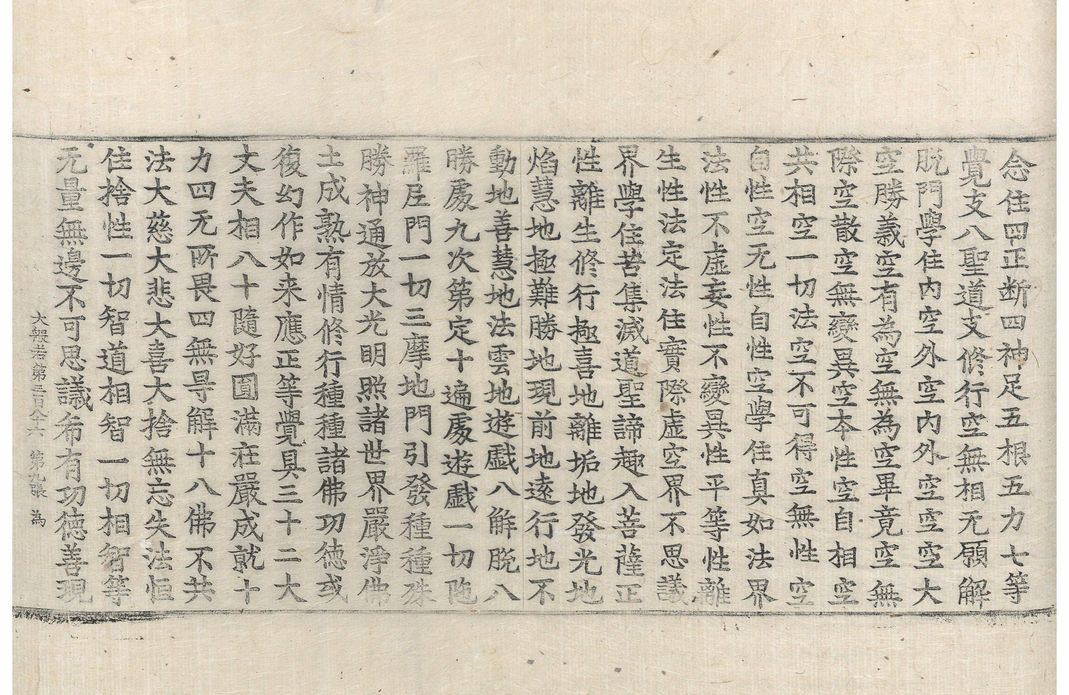 念住四正断四神足五根五力七等
覺支八聖道支修行空無相无願解
脱門學住內空外空內外空空空大
空勝義空有為空無為空畢竟空無
際空散空無變異空本性空自相空
共相空一切法空不可得空無性空
自性空无性自性空學住真如法界
法性不虛妄性不變異性平等性離
生性法定法住實際虛空界不思議
界學住苦集滅道聖諦趣入菩薩正
性離生修行極喜地離垢地發光地
焰慧地極難勝地現前地遠行地不
動地善慧地法雲地遊戲八解脱八
勝處九次第定十遍處遊戲一切陁
羅尼門一切三摩地門引發種種殊
勝神通放大光明照諸世界嚴淨佛
土成熟有情修行種種諸佛功德或
復幻作如来應正等覺具三十二大
丈夫相八十隨好圓滿莊嚴成就十
力四无所畏四無㝵解十八佛不共
法大慈大悲大喜大捨無忘失法恒
住捨性一切智道相智一切相智等
无量無邊不可思議希有功德善現
大般若第 百八十六 第九張 為